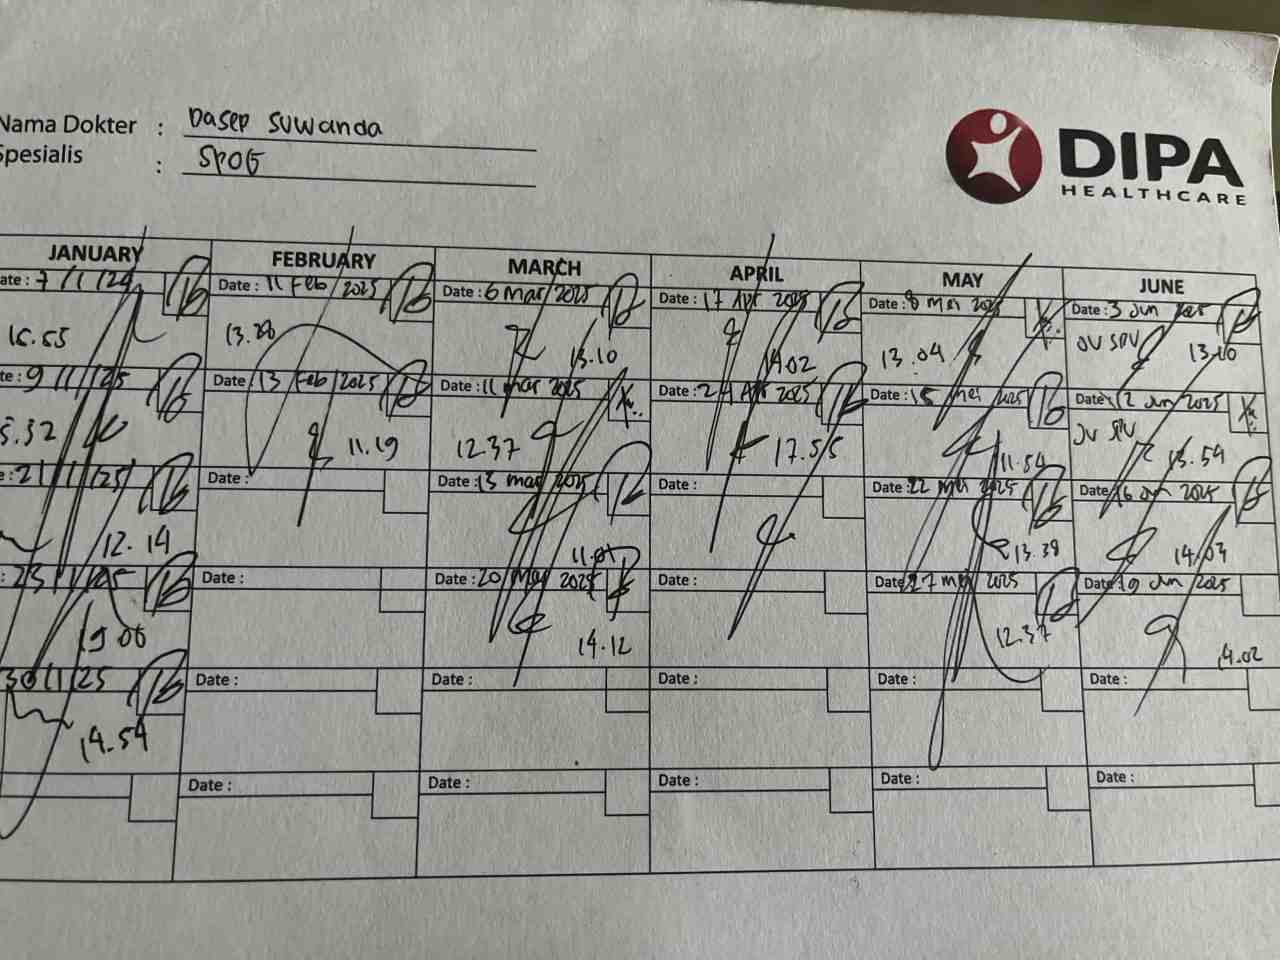 Nama Dokter : Dasep Suwanda
Spesialis : SPOG
DIPA
HEALTHCARE
JANUARY FEBRUARY MARCH APRIL MAY JUNE
ate : 7/1/24 Date : 11 Feb 2025 Date : 6 Mar 2025 Date : 17 Apr 2025 Date : 8 Mei 2025 Date : 3 Jun 2025
13.10 14.02 13.04 OV SPV 13.00
te : 9/1/25 Date : 13 Feb 2025 Date : 11 Mar 2025 Date : 24 Apr 2025 Date : 15 Mei 2025 Date : 12 Jun 2025
.32 11.19 12.37 17.55 11.54 OV SPV 13.59
e : 21/1/25 Date : Date : 13 Mar 2025 Date : Date : 22 Mei 2025 Date : 16 Jun 2025
12.14 13.38 14.03
: 23/1/25 Date : Date : 20 Mar 2025 Date : Date : 27 Mei 2025 Date : 19 Jun 2025
19.00 14.12 12.37 14.02
30/1/25 Date : Date : Date : Date : Date :
14.54
Date : Date : Date : Date : Date :